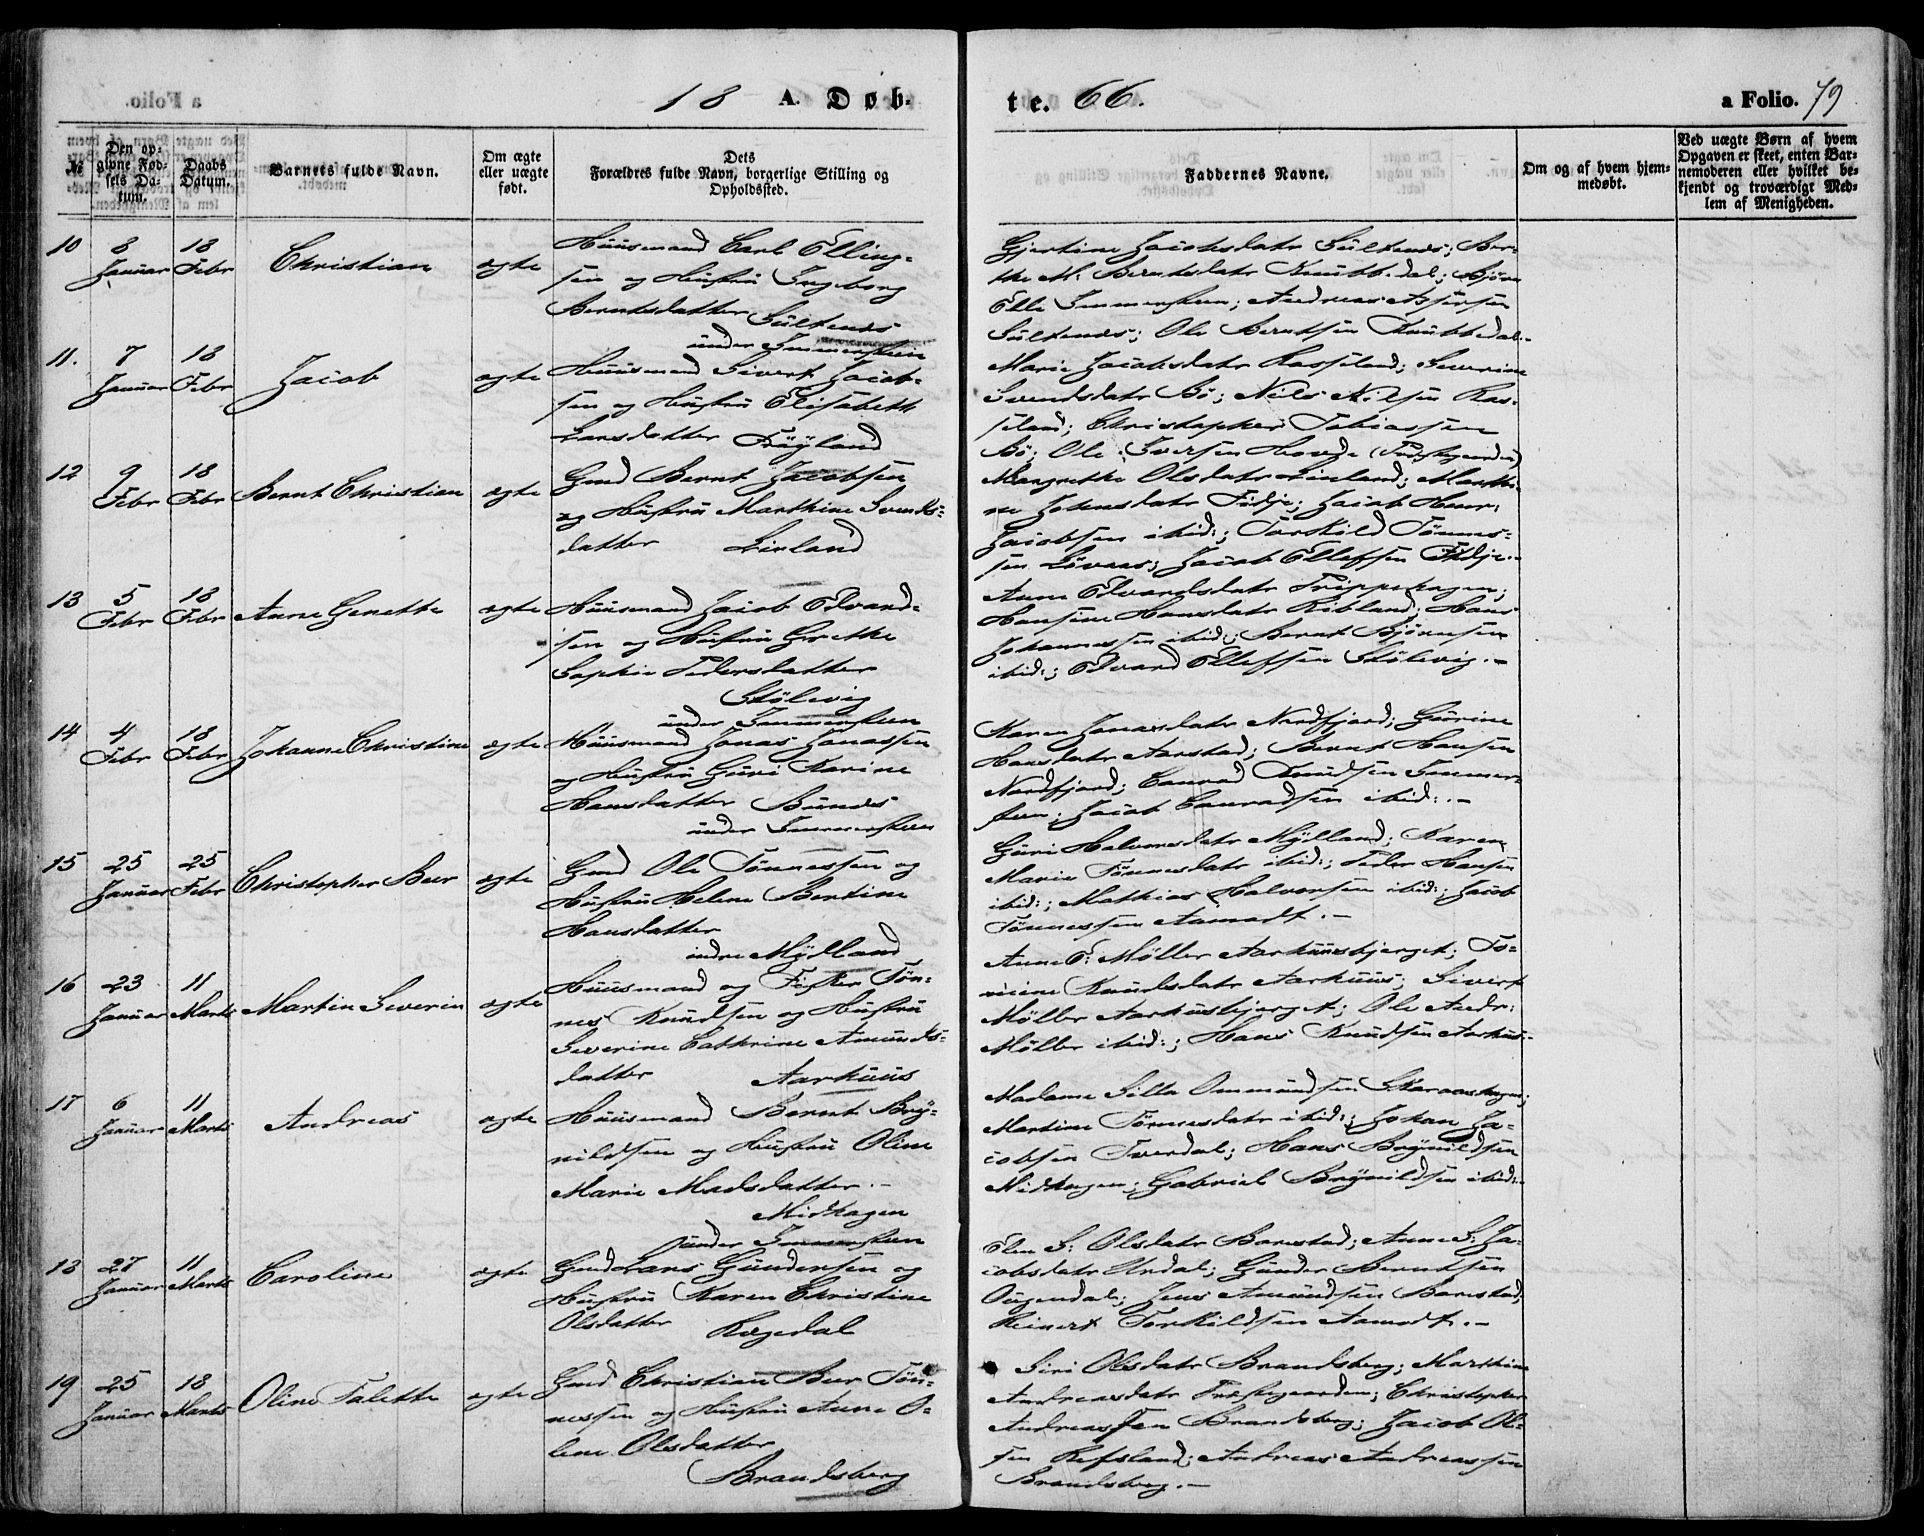 18 A. Døb-
te. 66.
a Folio. 79
№
Den op-
givne Fød-
sels Da-
tum.
Daabs
Datum.
Barnets fulde Navn.
Om ægte
eller uægte
født.
Dets
Forældres fulde Navn, borgerlige Stilling og
Opholdssted.
Faddernes Navne.
Om og af hvem hjem-
medøbt.
Ved uægte Børn af hvem
Opgaven er skeet, enten Bar-
nemoderen eller hvilket be-
kjendt og troværdigt Med-
lem af Menigheden.
10 8 Januar 18 Febr Christian ægte
Huusmand Carl Elling-
sen og Hustru Ingeborg
Berntsdatter Sültenes
under Immerstein
Gjertine Jacobsdatr Sültenes; Ber-
the M. Berntsdatr Knubbedal; Bjørn
Elle Immersteen; Andreas
Sültenes; Ole Berntsen Knubbedal.
11. 7 Januar 18 Febr Jacob ægte
Huusmand Sivert Jacob-
sen og Hustru Elisabeth
Larsdatter Frøyland
Marie Jacobsdatr Rosseland; Severine
Svendsdatr Bø; Nils Nilsen Ros-
seland; Christopher Tobiassen
Bø; Ole Iversen Hovde (Præstegaarden)
12 9 Febr 18 Febr Bernt Christian ægte
Gmd Bernt Jacobsen
og Hustru Marthine Svends-
datter Linland
Margrethe Olsdatr Linland; Marthi-
ne Johnsdatr Fidje; Jacob Henr:
Jacobsen ibid:; Torkild Tønnes-
sen Løvaas; Jacob Ellefsen Fidje.-
13 5 Febr 18 Febr Anne Genette ægte
Huusmand Jacob Edvard-
sen og Hustru Grethe
Sophie Pedersdatter
Stølevig
under Immersteen
Anne Edvardsdatr Trippehagen;
Hansine Hansdatr Kirkland; Hans
Johannessen ibid:; Bernt Bjørnsen
ibid:; Edvard Ellefsen Stølevig.-
14 4 Febr 18 Febr Johanne Christine ægte
Huusmand Jonas Jonassen
og Hustru Guri Karine
Hansdatter Bundes
under Immersteen
Karen Jonasdatr Nordfjord; Gurine
Hansdatr Aarstad; Bernt Hansen
Nordfjord; Conrad Knudsen Immer-
steen; Jacob Conradsen ibid:.-
15 25 Januar 25 Febr Christopher Beer ægte
Gmd Ole Tønnessen og
Hustru Helene Bertine
Hansdatter
indre Mydland
Guri Halvorsdatr Mydland; Karen
Marie Tønnesdatr ibid:; Peder Hansen
ibid:; Mathias Halvorsen ibid:; Jacob
Tønnessen Aamodt.-
16 23 Januar 11 Marts Martin Severin ægte
Huusmand og Fisker Tøn-
nes Knudsen og Hustru
Severine Cathrine Amunds-
datter Aarhuus
Anne E: Møller Aarhuusbjerget; To-
mine Knudsdatr Aarhuus; Sivert
Møller Aarhusbjerget; Ole Andr:
Møller ibid:; Hans Knudsen Aarhus.-
17 6 Januar 11 Marts Andreas ægte
Huusmand Bernt Bry-
nildsen og Hustru Oline
Marie Madsdatter.-
Midhagen
under Immersteen
Madame Silla Ommundsen Skaraashagen;
Martine Tønnesdatr ibid:; Johan Ja-
cobsen Tverdal; Hans Brynildsen
Midhagen; Gabriel Brynildsen ibid:.-
18 27 Januar 11 Marts Caroline ægte
Gmd Lars Gundersen og
Hustru Karen Christine
Olsdatter Rægedal
Elen S: Olsdatr Barstad; Anne S: Ja-
cobsdatr Urdal; Gunder Berntsen
Ougendal; Jens Amundsen Barstad;
Reinert Torkildsen Aamodt.-
19 25 Januar 18 Marts Oline Talette ægte
Gmd Christian Beer Tøn-
nessen og Hustru Anne O-
lene Olsdatter
Brandsberg
Siri Olsdatr Brandsberg; Marthine
Andreasdatr Præstegaarden; Christopher
Andreassen Brandsberg; Jacob Ol-
sen Refsland; Andreas Andreassen
Brandsberg.-